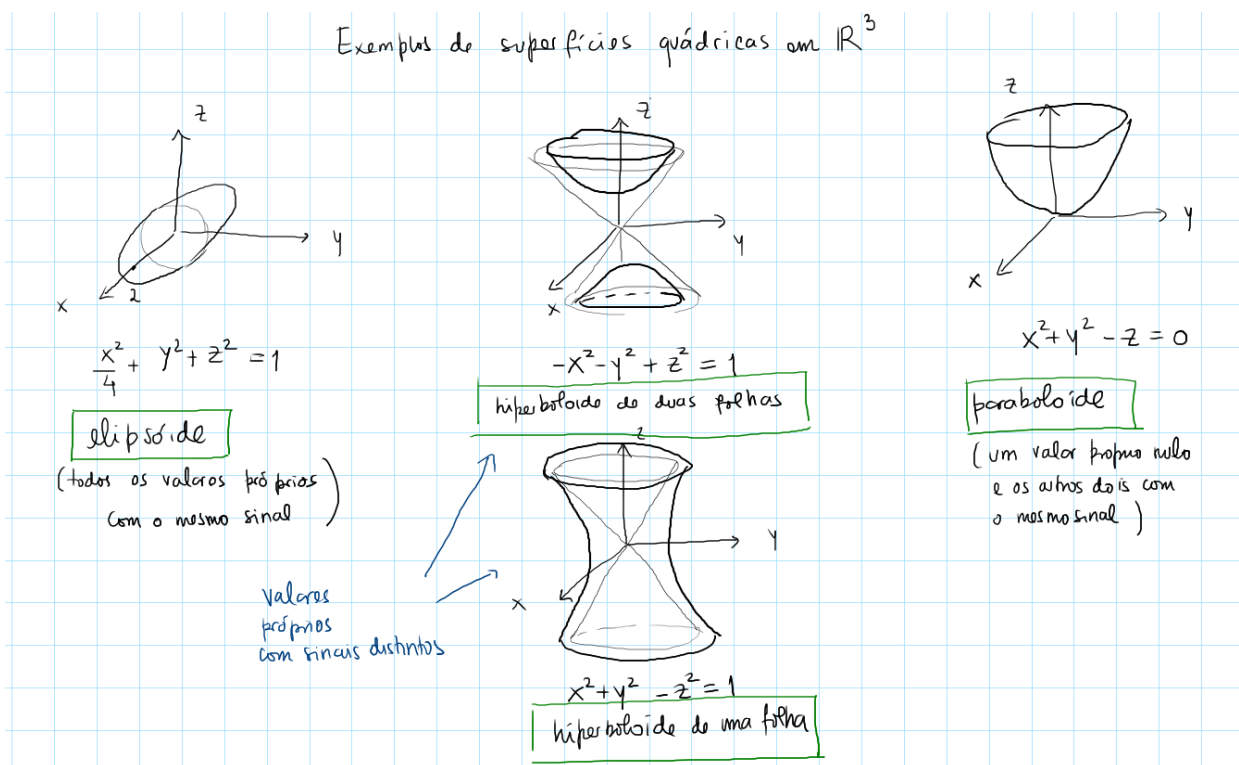 Exemplos de superfícies quádricas em ℝ³
z
y
x
2
x²/4 + y² + z² = 1
elipsóide
(todos os valores próprios
com o mesmo sinal)
z
y
x
-x² - y² + z² = 1
hiperboloide de duas folhas
z
y
x
x² + y² - z² = 1
hiperboloide de uma folha
valores
próprios
com sinais distintos
z
y
x
x² + y² - z = 0
paraboloide
(um valor próprio nulo
e os outros dois com
o mesmo sinal)